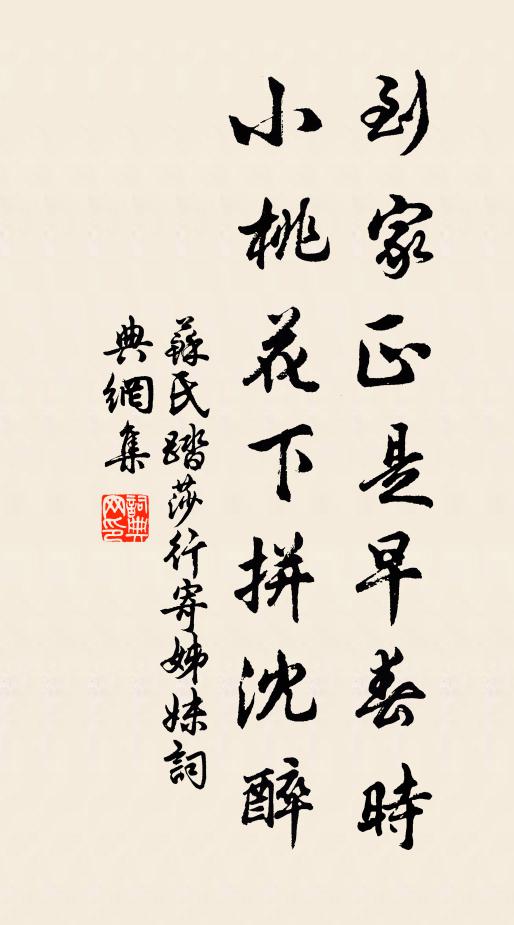 到家正是早春時
小桃花下拼沈醉
蘇氏踏莎行寄姊妹詞
典網集
詞典网印